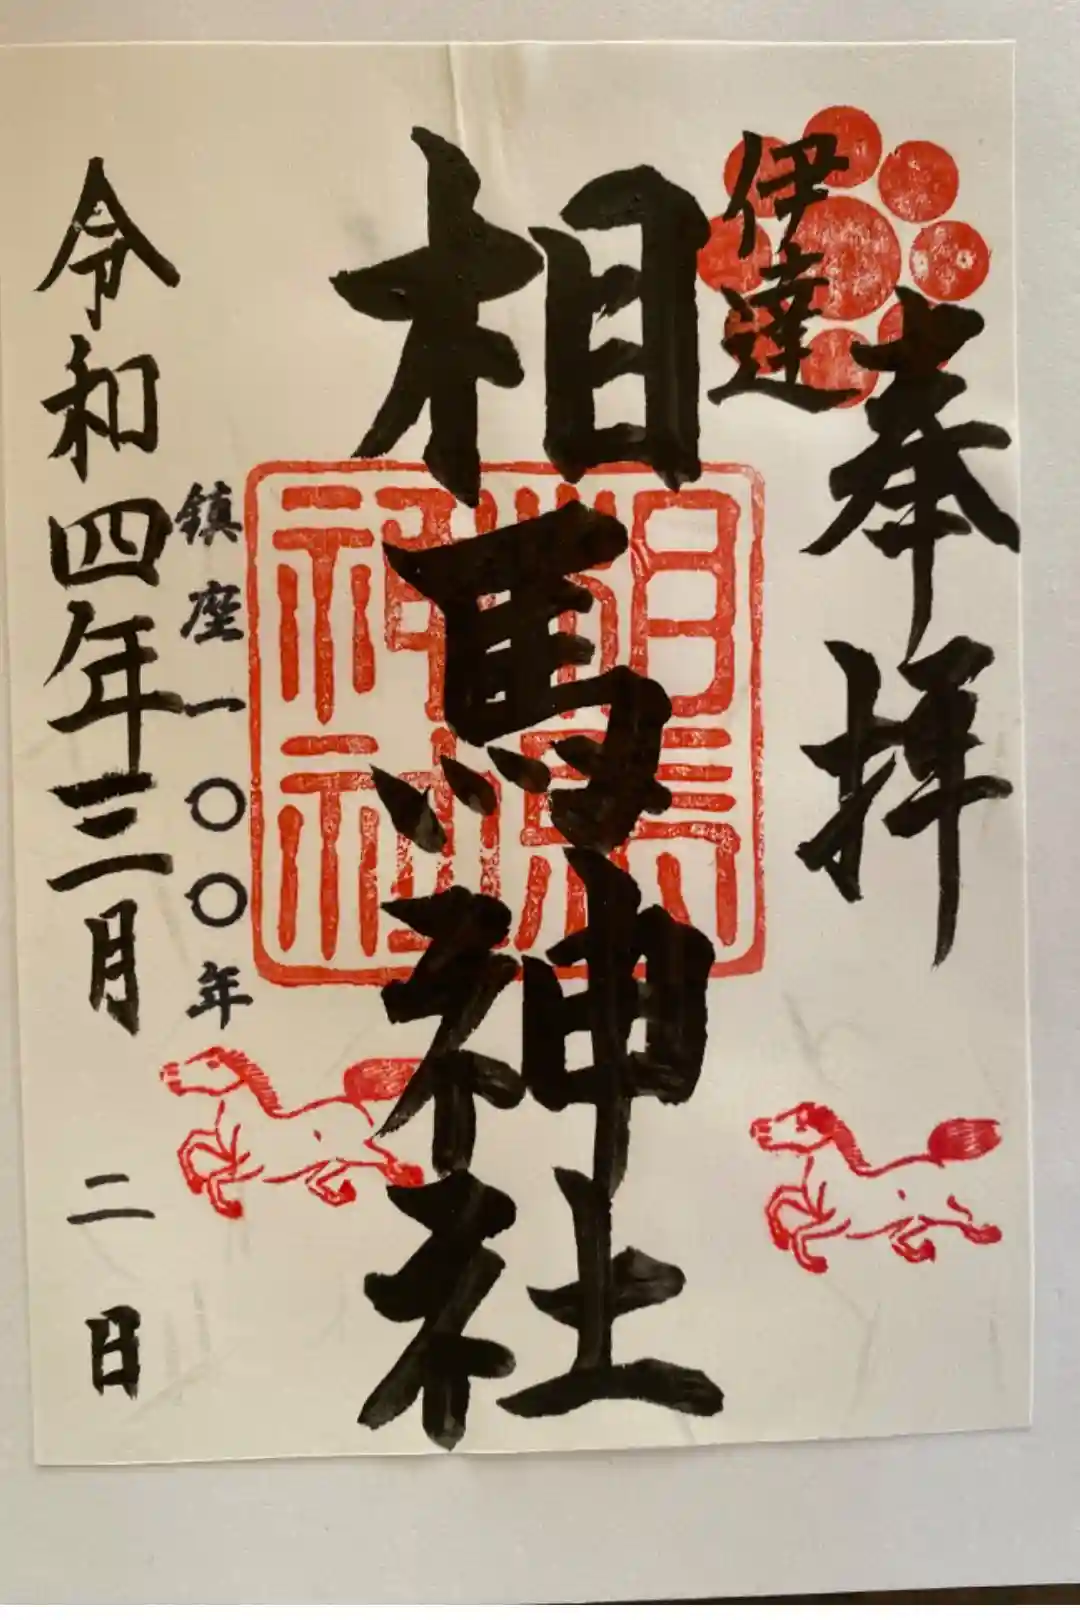 奉拝
伊達
相馬神社
相馬神社
鎮座一〇〇年
令和四年三月二日